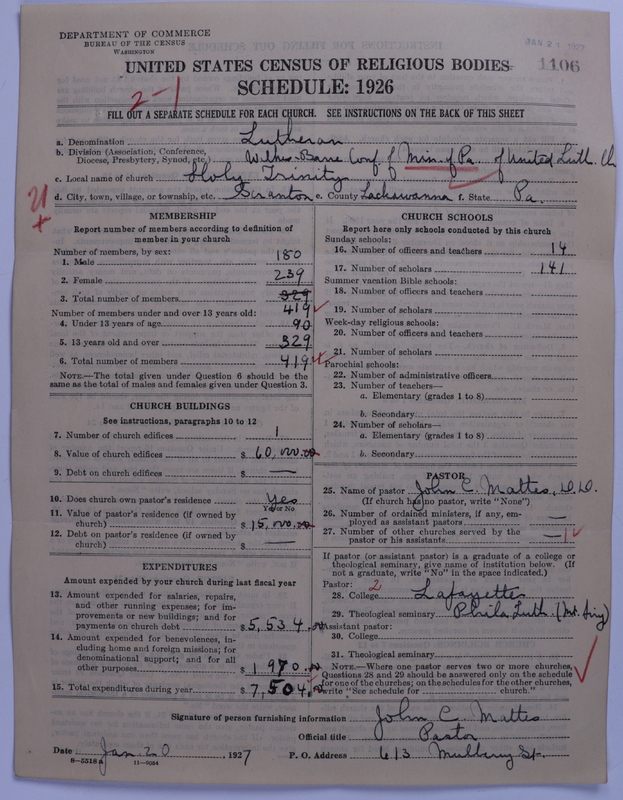 DEPARTMENT OF COMMERCE
BUREAU OF THE CENSUS
WASHINGTON
JAN 21 1927
UNITED STATES CENSUS OF RELIGIOUS BODIES
1106
SCHEDULE: 1926
2-1
FILL OUT A SEPARATE SCHEDULE FOR EACH CHURCH. SEE INSTRUCTIONS ON THE BACK OF THIS SHEET
a. Denomination Lutheran
b. Division (Association, Conference, Diocese, Presbytery, Synod, etc.) Wilkes-Barre Conf of Min. of Pa. of United Luth. Ch
c. Local name of church Holy Trinity
d. City, town, village, or township, etc. Scranton e. County Lackawanna f. State Pa.
MEMBERSHIP
Report number of members according to definition of member in your church
Number of members, by sex:
1. Male 180
2. Female 239
3. Total number of members 329 419
Number of members under and over 13 years old:
4. Under 13 years of age 90
5. 13 years old and over 329
6. Total number of members 419
NOTE.—The total given under Question 6 should be the same as the total of males and females given under Question 3.
CHURCH BUILDINGS
See instructions, paragraphs 10 to 12
7. Number of church edifices 1
8. Value of church edifices $ 60,000.00
9. Debt on church edifices $ —
10. Does church own pastor's residence Yes
Yes or No
11. Value of pastor's residence (if owned by church) $ 15,000.00
12. Debt on pastor's residence (if owned by church) $ —
EXPENDITURES
Amount expended by your church during last fiscal year
13. Amount expended for salaries, repairs, and other running expenses; for improvements or new buildings; and for payments on church debt $ 5,534.00
14. Amount expended for benevolences, including home and foreign missions; for denominational support; and for all other purposes $ 1970.00
15. Total expenditures during year $ 7,504.00
CHURCH SCHOOLS
Report here only schools conducted by this church
Sunday schools:
16. Number of officers and teachers 14
17. Number of scholars 141
Summer vacation Bible schools:
18. Number of officers and teachers
19. Number of scholars
Week-day religious schools:
20. Number of officers and teachers
21. Number of scholars
Parochial schools:
22. Number of administrative officers
23. Number of teachers—
a. Elementary (grades 1 to 8)
b. Secondary
24. Number of scholars—
a. Elementary (grades 1 to 8)
b. Secondary
PASTOR
25. Name of pastor John C. Mattes, D.D.
(If church has no pastor, write "None")
26. Number of ordained ministers, if any, employed as assistant pastors —
27. Number of other churches served by the pastor or his assistants — 1
If pastor (or assistant pastor) is a graduate of a college or theological seminary, give name of institution below. (If not a graduate, write "No" in the space indicated.)
Pastor: 2
28. College Lafayette
29. Theological seminary Phila Luth. (Mt. Airy)
Assistant pastor:
30. College
31. Theological seminary
NOTE.—Where one pastor serves two or more churches, Questions 28 and 29 should be answered only on the schedule for one of the churches; on the schedules for the other churches, write "See schedule for church."
Signature of person furnishing information John C. Mattes
Official title Pastor
Date Jan 20 1927 P. O. Address 613 Mulberry St.
8—5518a 11—9054